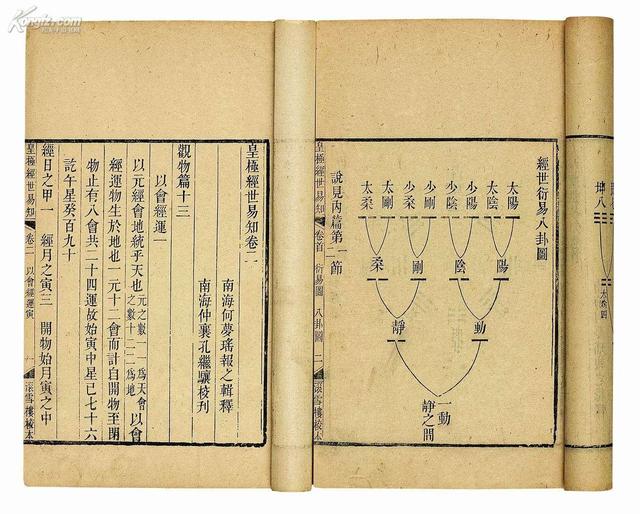 Kongfz.com
經世衍易八卦圖
太陽
太陰
少陽
少陰
少剛
少柔
太剛
太柔
陽
陰
剛
柔
動
靜
一動
靜之間
說見內篇第二節
皇極經世易知 卷首 衍易圖 八卦圖 二 滾雪樓校本
皇極經世易知卷二
南海何夢瑤報之輯釋
南海仲襄孔繼驤校刊
觀物篇十三
以會經運一
以元經會地統乎天也元之數一一爲天會之數十二二爲地以會
經運物生於地也一元十二會而計自開物至閉
物止有八會共二十四運故始寅中星己七十六
訖午星癸百九十
經日之甲一 經月之寅三 開物始月寅之中
皇極經世易知 卷二 以會經運寅 一 滾雪樓校本
坤八
太柔